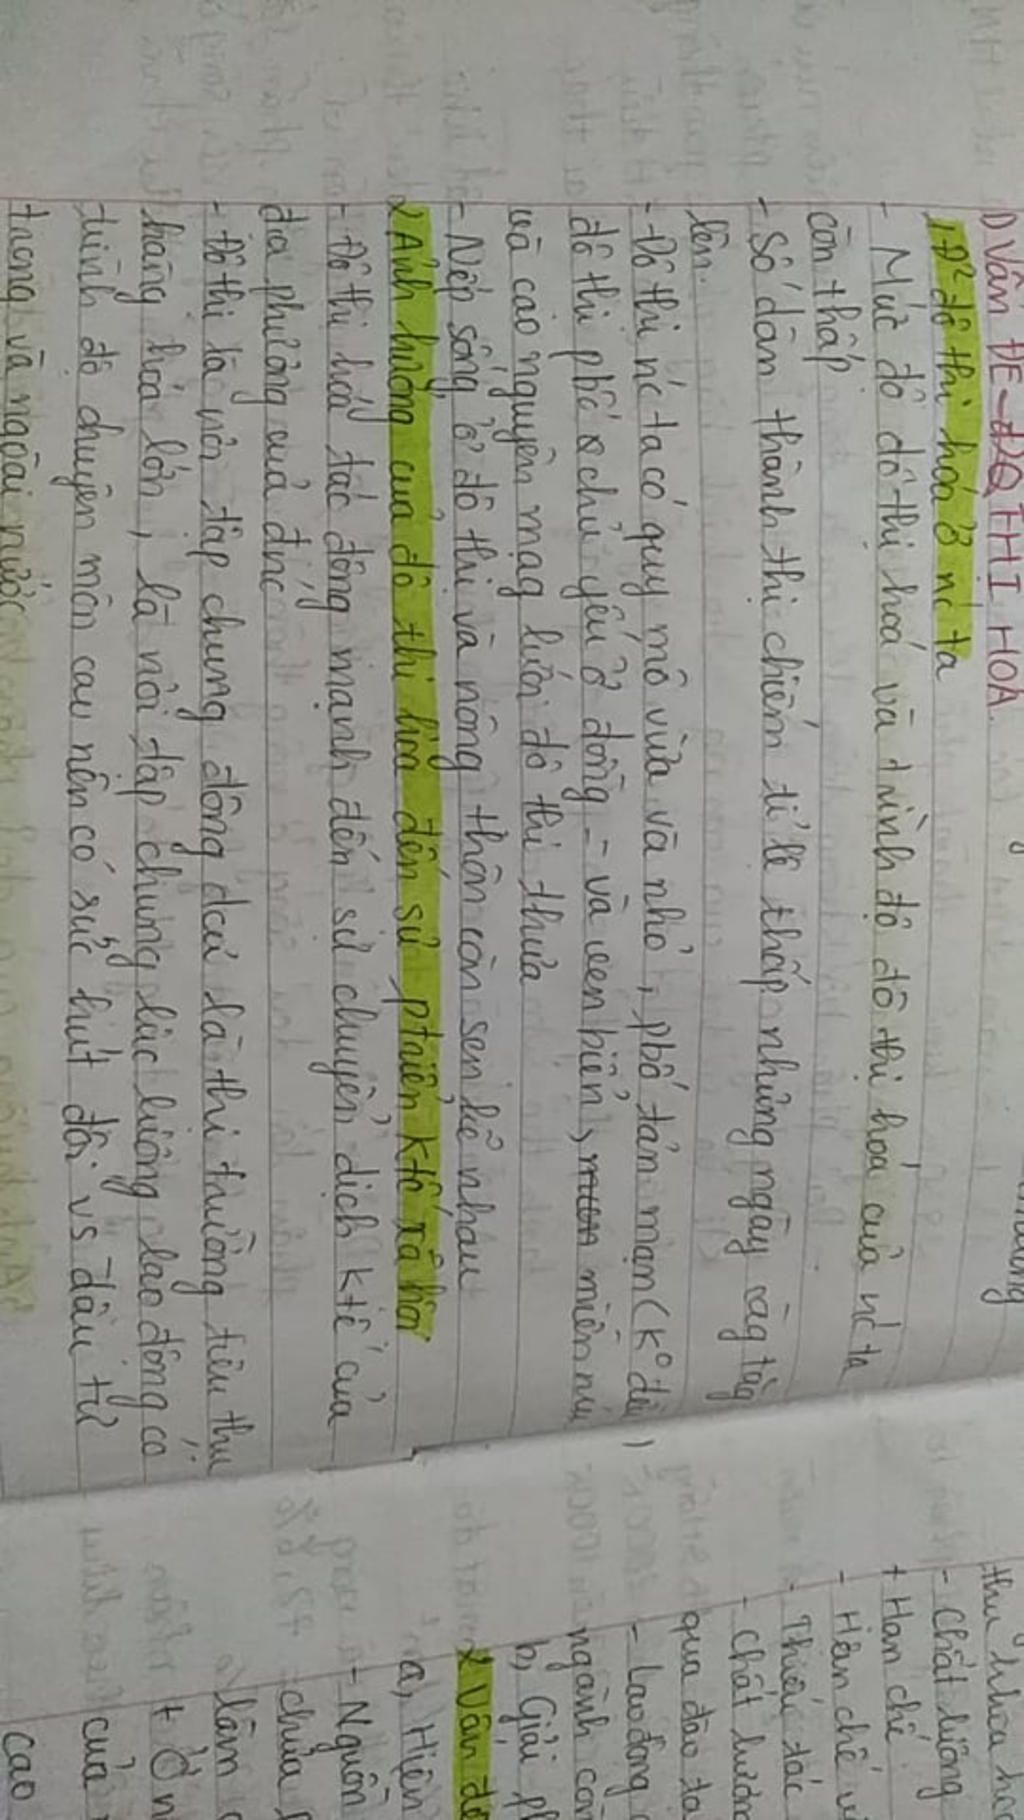 D VẤN ĐỀ - ĐQ THỊ HOÁ.
1, Đ² đô thị hoá ở nc ta
- Mức độ đô thị hoá và trình độ đô thị hoá của nc ta
còn thấp
- Số dân thành thị chiếm tỉ lệ thấp nhưng ngày càg tăg
lên.
- Đô thị nc ta có quy mô vừa và nhỏ, phố tán mạn (K° đều)
đô thị phố chủ yếu ở đồng = và ven biển, miền núi
và cao nguyên mạg lưới đô thị thưa
- Nếp sống ở đô thị và nông thôn còn sen kẽ nhau
2 Ảnh hưởng của đô thị hoá đến sự ptriển Ktế xã hội
- Đô thị hoá tác động mạnh đến sự chuyển dịch Ktế của
địa phương của đnc
- Đô thị là nơi tập chung đông dcư là thị trường tiêu thụ
hàng hoá lớn, là nơi tập chung lực lượng lao động có
trình độ chuyên môn cao nên có sức hút đối vs đầu tư
trong và ngoài nước
- Chất lượng
+ Hạn chế
- Hạn chế
- Thiếu tác
- Chất lượng
qua đào tạ
- Lao động
ngành còn
b, Giải p
2 Vấn đề
a, Hiện
- Nguồn
chưa
làm
+ Ở n
của
cao